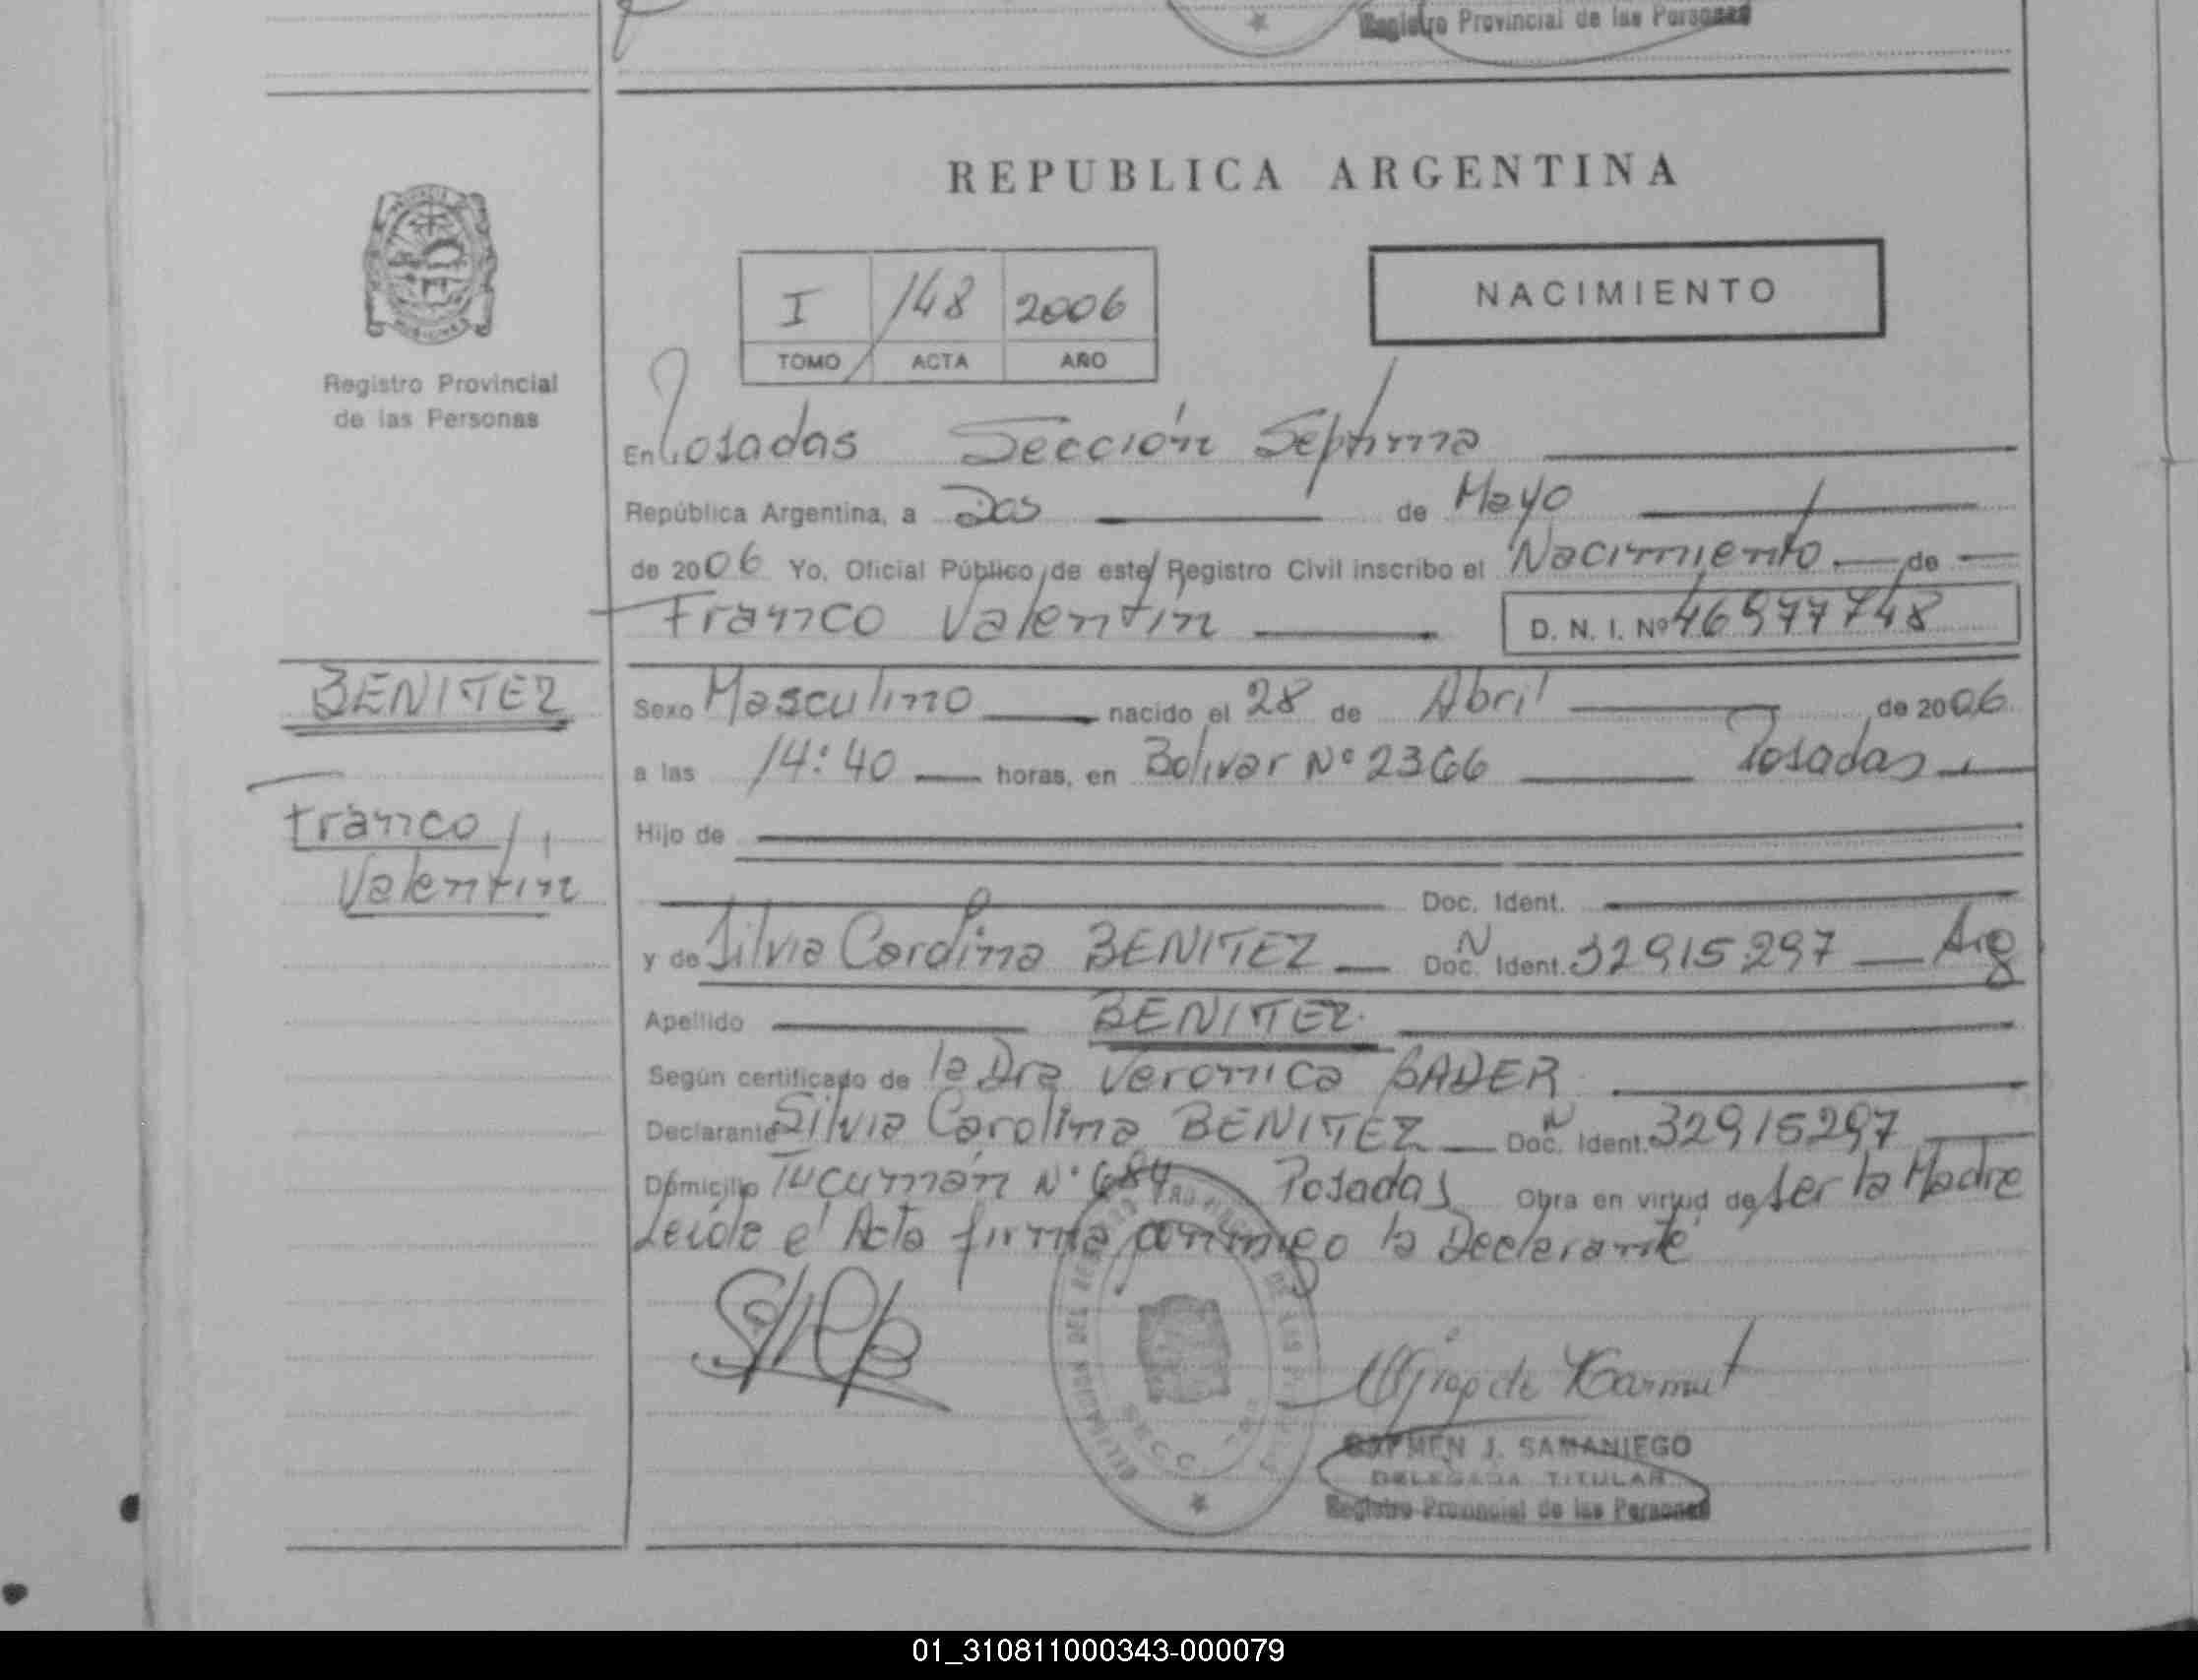 Registro Provincial de las Personas
REPUBLICA ARGENTINA
NACIMIENTO
I 148 2006
TOMO ACTA AÑO
Registro Provincial
de las Personas
En Posadas Sección Séptima
República Argentina, a Dos de Mayo
de 2006 Yo, Oficial Público de este Registro Civil inscribo el Nacimiento de
Franco Valentín D. N. I. Nº 46977748
BENITEZ
Franco
Valentín
Sexo Masculino nacido el 28 de Abril de 2006
a las 14:40 horas, en Bolivar Nº 2366 Posadas
Hijo de
Doc. Ident.
y de Silvia Carolina BENITEZ Doc. N Ident. 32915297 Arg
Apellido BENITEZ
Según certificado de la Dra Veronica BADER
Declarante Silvia Carolina BENITEZ Doc. N Ident. 32915297
Domicilio Tucumán Nº 684 Posadas Obra en virtud de ser la Madre
Leída el Acta firma conmigo la Declarante
CARMEN J. SAMANIEGO
DELEGADA TITULAR
Registro Provincial de las Personas
01_310811000343-000079